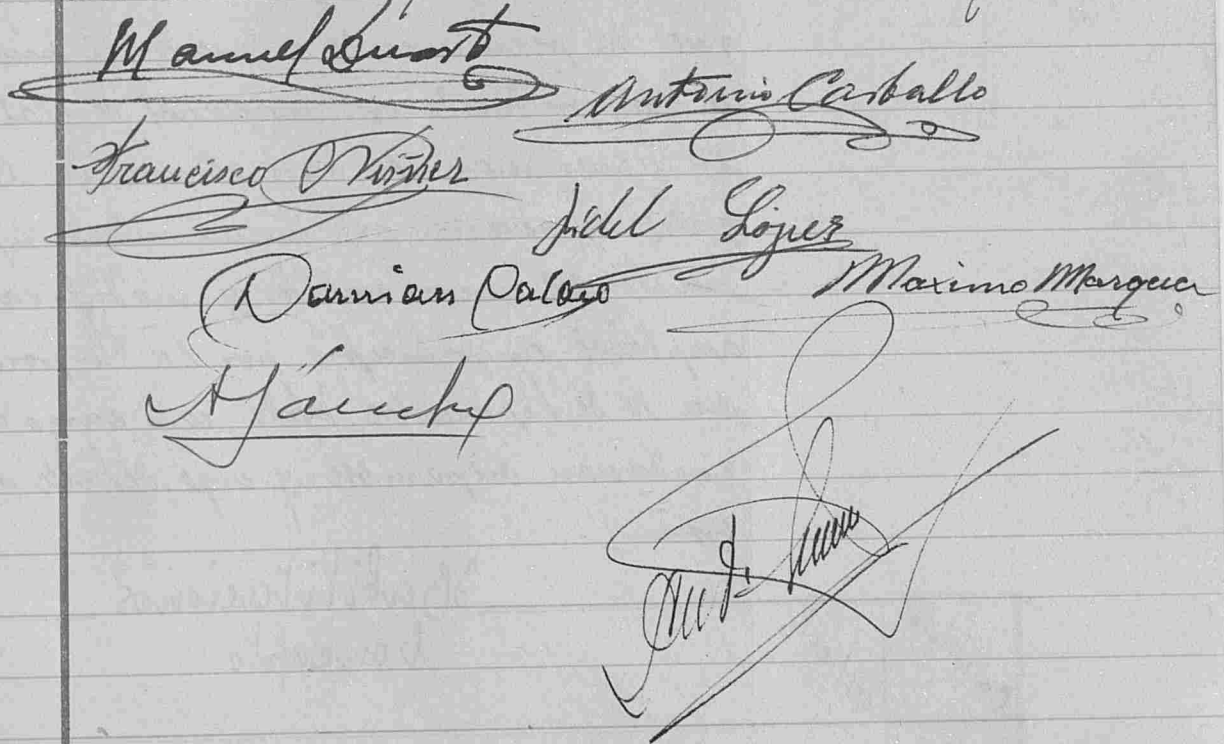 Manuel Duarte
Antonio Carballo
Francisco Núñez
Fidel López
Damian Palomo
Maximo Marquez
A Sánchez